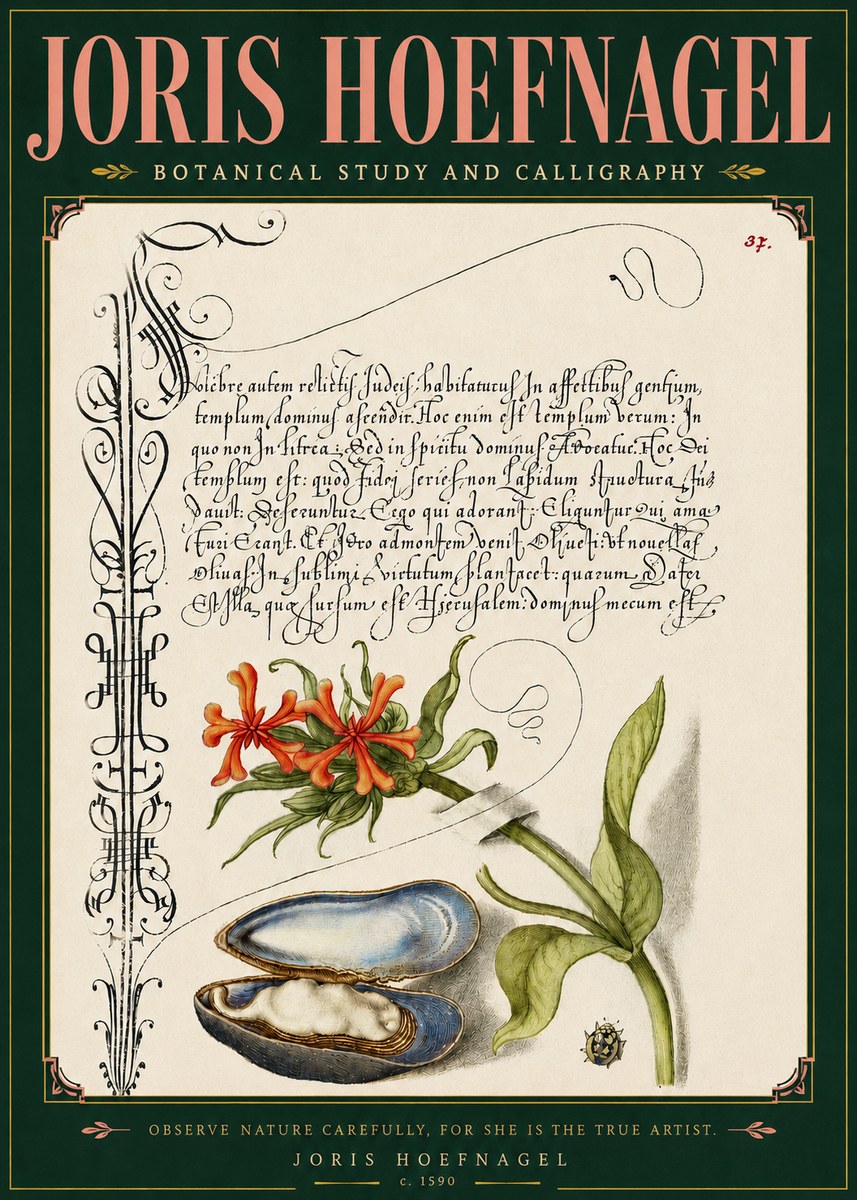 JORIS HOEFNAGEL
BOTANICAL STUDY AND CALLIGRAPHY
37.
autem relictis Judeis, habitaturus In affectibus gentium,
templum dominus ascendit. Hoc enim est templum verum: In
quo non In littea; Sed in spiritu dominus. Hoc Dei
templum est: quod fidei series, non Lapidum structura
dauit. Deseruntur Ergo qui adorant: Eliguntur Qui ama
turi Erant. Et Ideo ad montem venit Oliueti: vt nouellas
Oliuas In sublimi virtutum plantaret: quarum Mater
Est Illa, quæ sursum est Hierusalem: dominus mecum est
OBSERVE NATURE CAREFULLY, FOR SHE IS THE TRUE ARTIST.
JORIS HOEFNAGEL
c. 1590